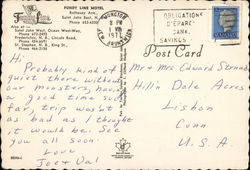 FUNDY LINE MOTEL
Rothesay Ave.,
Saint John East, N.
Phone
Saint John West, Ocean West-Way,
Phone
Fredericton, N. B., Lincoln Road,
Phone
St. Stephen, N. B., King St.,
Phone 466-2130
MONCTON
PM
NEW BRUNSWICK
OBLIGATIONS
D'ÉPARGNE
CANADA
SAVINGS
CANADA
Post Card
Hi.
Probably kind of
quiet there without
our monsters, have
a good time so
far, trip wasn't
as bad as I thought
it would be. See
you all soon.
Love
Joe + Val
Mr + Mrs Edward Strand
Hillin Dale Acres
Lisbon
Conn
U.S.A.